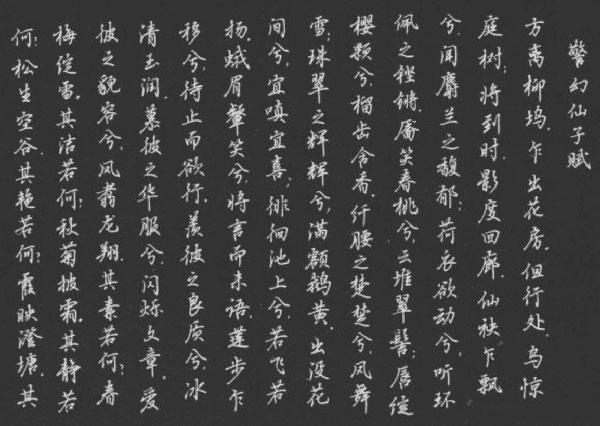 警幻仙子赋
方离柳坞,乍出花房。但行处,鸟惊
庭树;将到时,影度回廊。仙袂乍飘
兮,闻麝兰之馥郁;荷衣欲动兮,听环
佩之铿锵。靥笑春桃兮,云堆翠髻;唇绽
樱颗兮,榴齿含香。纤腰之楚楚兮,风舞
雪;珠翠之辉辉兮,满额鹅黄。出没花
间兮,宜嗔宜喜;徘徊池上兮,若飞若
扬。蛾眉颦笑兮,将言而未语;莲步乍
移兮,待止而欲行。羡彼之良质兮,冰
清玉润;慕彼之华服兮,闪烁文章。爱
彼之貌容兮,凤翥龙翔。其素若何:春
梅绽雪。其洁若何:秋菊披霜。其静若
何:松生空谷。其艳若何:霞映澄塘。其